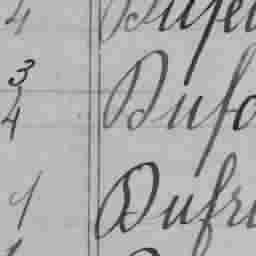 4 Dufe
3
4 Dufo
1 Dufre